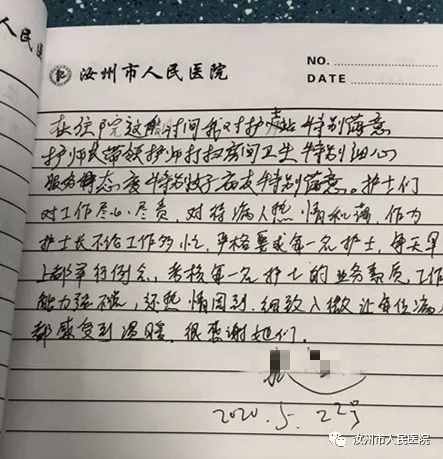 人民医
汝州市人民医院
NO.
DATE
在住院这段时间我对护士站特别满意
护师长带领护师打扫房间卫生特别细心
服务态度特别好病友特别满意。护士们
对工作尽心尽责，对待病人热情和蔼，作为
护士长不论工作多忙，严格要求每一名护士，每天早
上都举行例会，考核每一名护士的业务素质，工作
能力强不说，还热情周到，细致入微让每位病人
都感受到温暖，很感谢她们。
2020.5.22号
汝州市人民医院